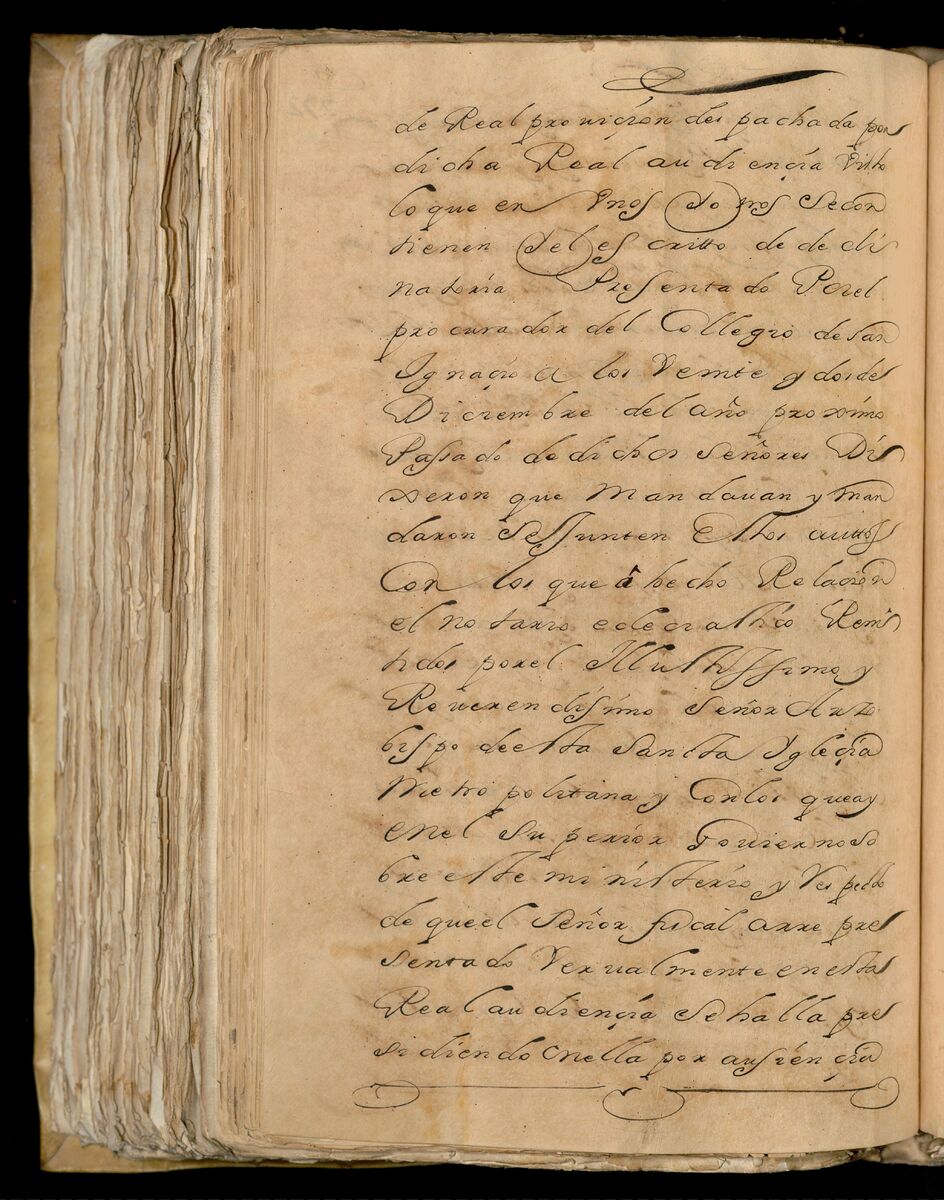 de Real prouiçion des pachada por
dicha Real audiençia Visto
lo que en Vnos y otros se con
tienen y del escritto de de cli
natoria Presentado Por el
procurador del Collegio de San
Ygnaçio a los Veinte y dos de
Diciembre del año proximo
Passado de dichos señores Di
xeron que Mandauan y man
daron se Junten esttos auttos
Con los que â hecho Relacion
el notario ecleciasttico Remi
tidos por el Illusttissimo y
Reuerendisimo señor Arzo
bispo de estta Sancta Yglecia
Metropolitana y Con los que ay
en el superior Gouierno so
bre este ministterio y Respecto
de que el señor fiscal a rre pre
sentado Verualmente en esta
Real audiençia se halla pre
sidiendo en ella por ausençia